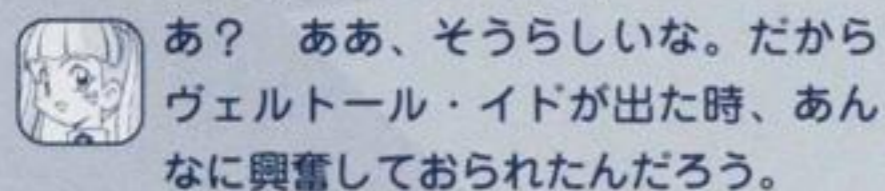 あ？　ああ、そうらしいな。だから
ヴェルトール・イドが出た時、あん
なに興奮しておられたんだろう。